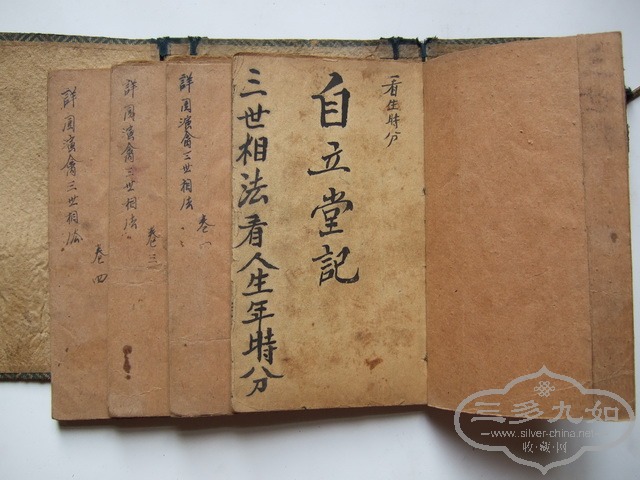 看生時分
自立堂記
三世相法看人生年時分
詳圓演禽三世相法
詳圓演禽三世相法
卷三
詳圓演禽三世相法
卷四
三多九如
www.silver-china.net
收藏网